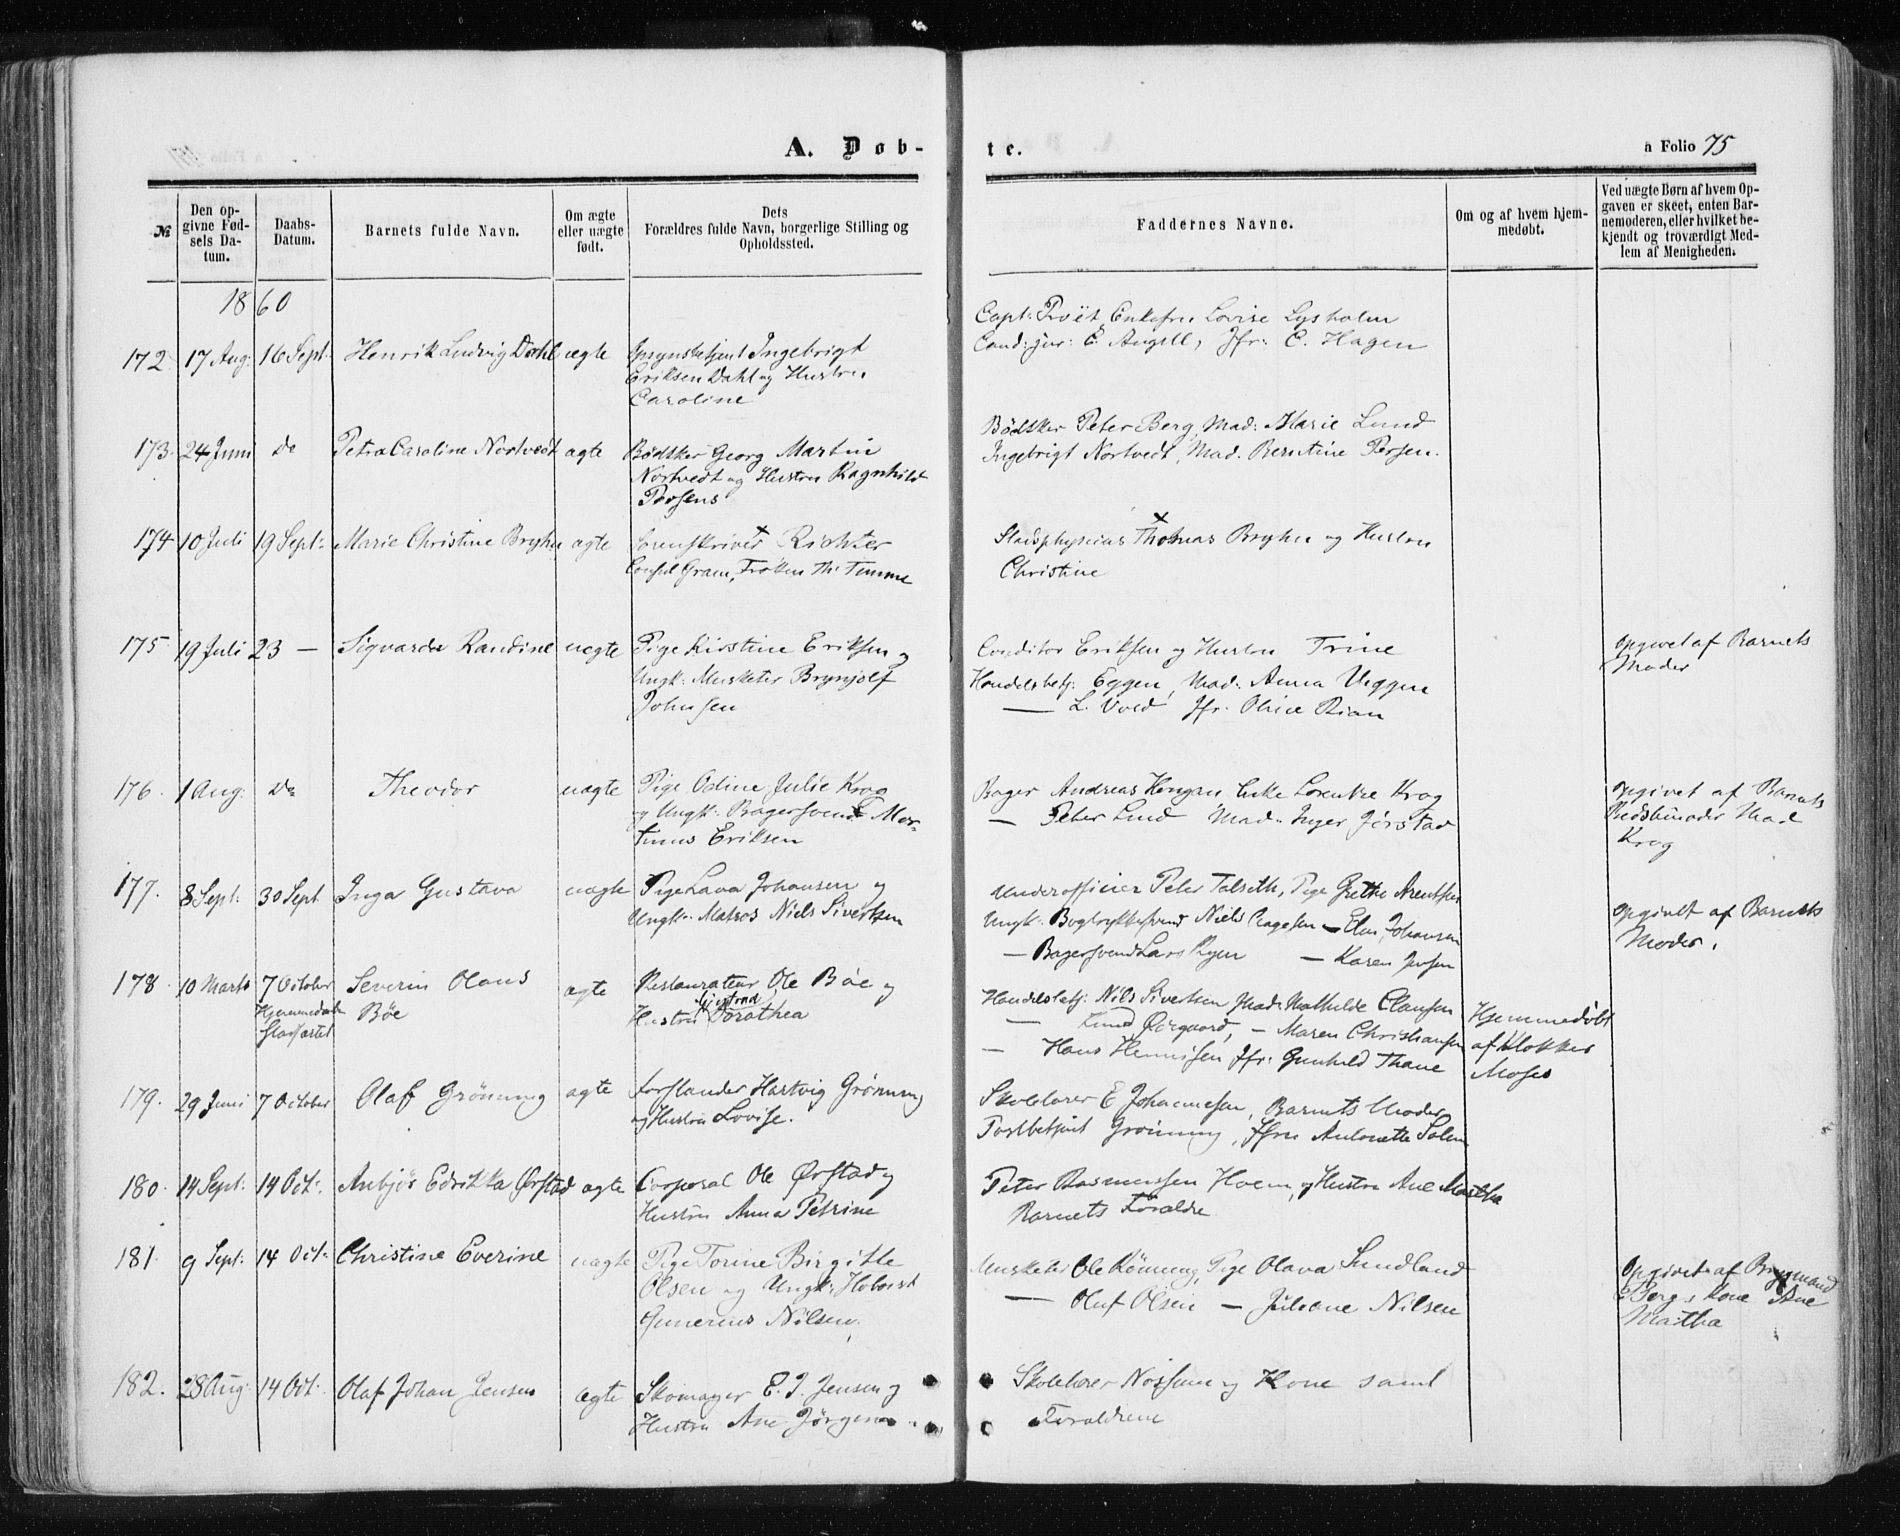 A. Døb-
te.
a Folio 75
№
Den op-
givne Fød-
sels Da-
tum.
Daabs-
Datum.
Barnets fulde Navn.
Om ægte
eller uægte
født.
Dets
Forældres fulde Navn, borgerlige Stilling og
Opholdssted.
Faddernes Navne.
Om og af hvem hjem-
medøbt.
Ved uægte Børn af hvem Op-
gaven er skeet, enten Bar-
nemoderen, eller hvilket be-
kjendt og troværdigt Med-
lem af Menigheden.
1860
172. 17 Aug: 16 Sept. Henrik Ludvig Dahl ægte
Opsynsbetjent Ingebrigt
Eriksen Dahl og Hustru
Caroline
Capt: Enkefru Lovise Lysholm
Cand: jur: E. Angell, Jfr: C. Hagen
173. 24 Juni Do Petra Caroline Nortvedt ægte
Bødker Georg Martin
Nortvedt og Hustru Ragnhild
Bødker Peter Berg, Mad: Marie Lund
Ingebrigt Nortvedt, Mad. Berntine
174 10 Juli 19 Sept: Marie Christine Bryhn ægte
Sorenskriver × Richter
Consul Gram, Frøken Th:
Stadsphysicus × Thomas Bryhn og Hustru
Christine
175 19 Juli 23 — Sigvarda Randine uægte
Pige Kirstine Eriksen og
Ungk: Musketer Brynjolf
Johnsen
Conditor Eriksen og Hustru Trine
Handelsbetj: Eggen, Mad: Anna Uggen
— L. Vold Jfr. Rian
opgivet af Barnets
Moder
176. 1 Aug: Do Theodor uægte
Pige Odine Julie Krog
og Ungk: Bagersvend Mar-
tinus Eriksen
Bager Andreas Enke Lorentze Krog
— Peter Lund Mad: Inger Jørstad
opgivet af Barnets
Bedstemoder Mad
Krog
177. 8 Sept: 30 Sept Inga Gustava uægte
Pige Lava Johansen og
Ungk: Matros Niels Sivertsen
Underofficier Peter Talseth, Pige Grethe Arentsen
Ungk: Niels — Johansen
— Bagersvend Lars Ryen — Karen Jensen
opgivet af Barnets
Moder.
178 10 Marts 7 October Severin Olaus
Bøe
Hjemmedøb
Stadfæstet
ægte
Restaurateur Ole Bøe og
Hustru Dorathea
Handelsbetj: Nils Sivertsen Mad: Mathilde Clausen
— Knud — Maren Christiansen
— Hans Jfr: Gunhild Thane
Hjemmedøbt
af Klokker
Moses
179. 29 Juni 7 October Olaf Grønning ægte
Forstander Hartvig Grønning
og Hustru Lovise.
Skolelærer E Johannesen, Barnets Moder
Postbetjent Grønning, Jfru Antonette Solem
180. 14 Sept: 14 Oct: Anbjør Edrikka Ørstad ægte
Corporal Ole Ørstad og
Hustru Anna Petrine
Peter Rasmussen Hoem, og Hustru Ane Martha
Barnets Forældre
181. 9 Sept: 14 Oct: Christine Everine uægte
Pige Torine Birgitte
Olsen og Ungk: Hoboist
Gunerius Nilsen.
Musketer Ole Rønning, Pige Olava Sundland
— Oluf Olsen — Juliane Nilsen
Opgivet af
Bergs Kone Ane
Martha
182. 28 Aug: 14 Oct: Olaf Johan Jensen ægte
Skomager E. J. Jensen og
Hustru Ane
Skolelærer og Kone samt
Forældrene